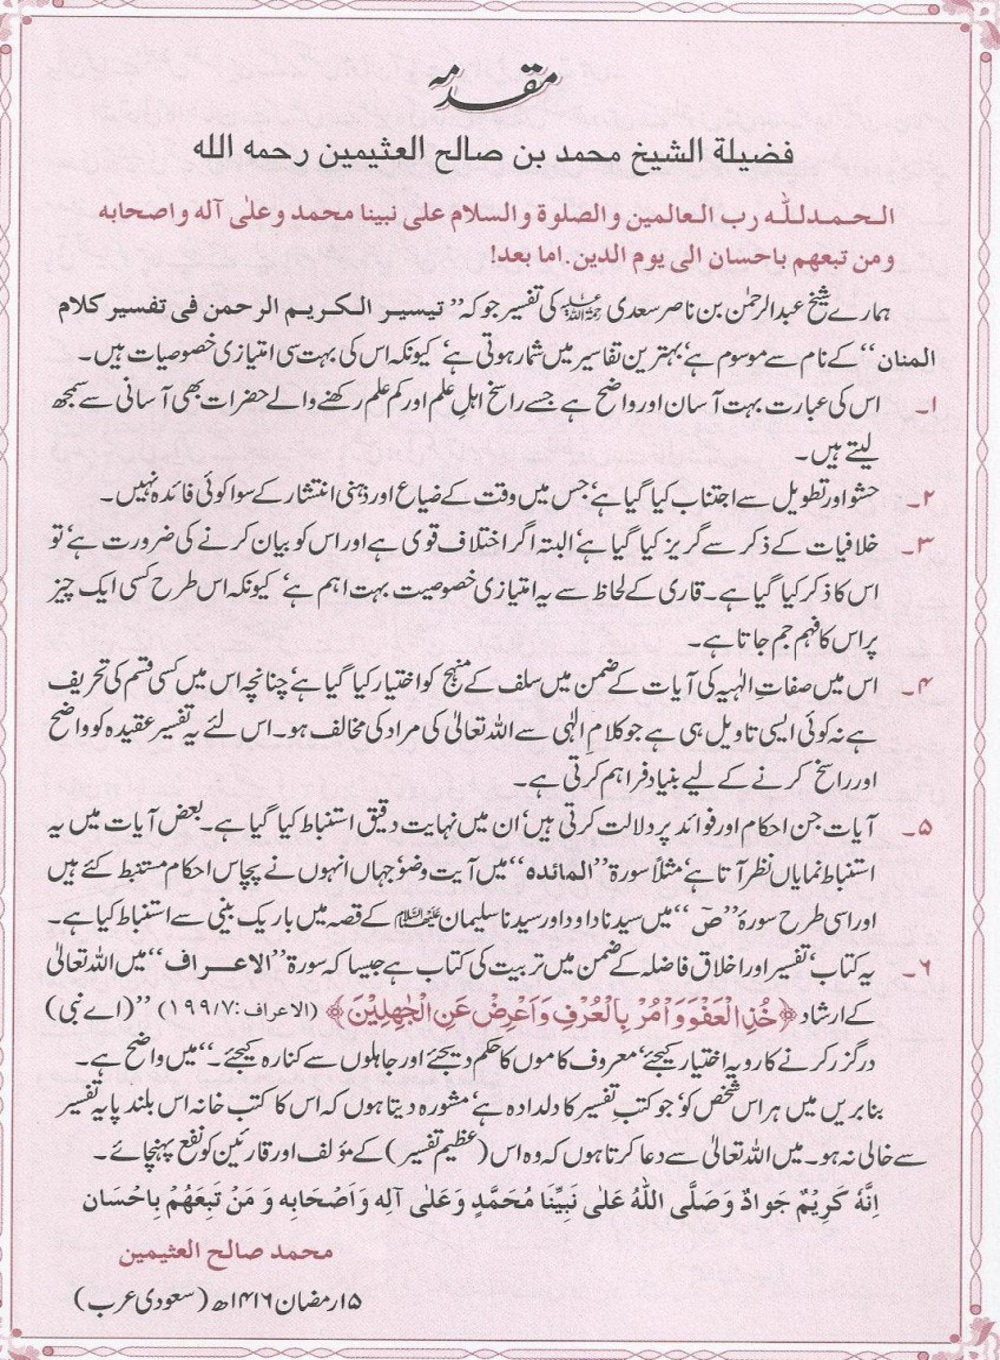 مقدمہ
فضیلة الشیخ محمد بن صالح العثیمین رحمه الله
الحمدللّٰہ رب العالمین والصلوة والسلام علی نبینا محمد وعلٰی آله واصحابه
ومن تبعهم باحسان الی یوم الدین. اما بعد!
ہمارے شیخ عبدالرحمٰن بن ناصر سعدی رحمہ اللہ کی تفسیر جو کہ ’’تیسیر الکریم الرحمن فی تفسیر کلام
المنان‘‘ کے نام سے موسوم ہے‘ بہترین تفاسیر میں شمار ہوتی ہے‘ کیونکہ اس کی بہت سی امتیازی خصوصیات ہیں۔
۱۔ اس کی عبارت بہت آسان اور واضح ہے جسے راسخ اہلِ علم اور کم علم رکھنے والے حضرات بھی آسانی سے سمجھ
لیتے ہیں۔
۲۔ حشو اور تطویل سے اجتناب کیا گیا ہے‘ جس میں وقت کے ضیاع اور ذہنی انتشار کے سوا کوئی فائدہ نہیں۔
۳۔ خلافیات کے ذکر سے گریز کیا گیا ہے‘ البتہ اگر اختلاف قوی ہے اور اس کو بیان کرنے کی ضرورت ہے‘ تو
اس کا ذکر کیا گیا ہے۔ قاری کے لحاظ سے یہ امتیازی خصوصیت بہت اہم ہے‘ کیونکہ اس طرح کسی ایک چیز
پر اس کا فہم جم جاتا ہے۔
۴۔ اس میں صفاتِ الٰہیہ کی آیات کے ضمن میں سلف کے منہج کو اختیار کیا گیا ہے‘ چنانچہ اس میں کسی قسم کی تحریف
ہے نہ کوئی ایسی تاویل ہی ہے جو کلامِ الٰہی سے اللہ تعالیٰ کی مراد کی مخالف ہو۔ اس لئے یہ تفسیر عقیدہ کو واضح
اور راسخ کرنے کے لیے بنیاد فراہم کرتی ہے۔
۵۔ آیات جن احکام اور فوائد پر دلالت کرتی ہیں‘ ان میں نہایت دقیق استنباط کیا گیا ہے۔ بعض آیات میں یہ
استنباط نمایاں نظر آتا ہے‘ مثلاً سورۃ ’’المائدہ‘‘ میں آیت وضو‘ جہاں انہوں نے پچاس احکام مستنبط کئے ہیں
اور اسی طرح سورۂ ’’صٓ‘‘ میں سیدنا داود اور سیدنا سلیمان علیہما السلام کے قصہ میں باریک بینی سے استنباط کیا ہے۔
۶۔ یہ کتاب‘ تفسیر اور اخلاق فاضلہ کے ضمن میں تربیت کی کتاب ہے جیسا کہ سورۃ ’’الاعراف‘‘ میں اللہ تعالیٰ
کے ارشاد ﴿خُذِ الْعَفْوَ وَاْمُرْ بِالْعُرْفِ وَاَعْرِضْ عَنِ الْجٰهِلِيْنَ﴾ (الاعراف:۱۹۹/۷) ’’(اے نبی)
درگزر کرنے کا رویہ اختیار کیجئے‘ معروف کاموں کا حکم دیجئے اور جاہلوں سے کنارہ کیجئے۔‘‘ میں واضح ہے۔
بنا بریں میں ہر اس شخص کو‘ جو کتبِ تفسیر کا دلدادہ ہے‘ مشورہ دیتا ہوں کہ اس کا کتب خانہ اس بلند پایہ تفسیر
سے خالی نہ ہو۔ میں اللہ تعالیٰ سے دعا کرتا ہوں کہ وہ اس (عظیم تفسیر) کے مؤلف اور قارئین کو نفع پہنچائے۔
اِنَّهٗ كَرِيْمٌ جَوادٌ وَصَلَّى اللّٰهُ عَلٰى نَبِيِّنَا مُحَمَّدٍ وَعَلٰى آلِه وَاَصْحَابِه وَ مَنْ تَبِعَهُمْ بِاِحْسَان
محمد صالح العثیمین
۱۵رمضان ۱۴۱۶ھ (سعودی عرب)